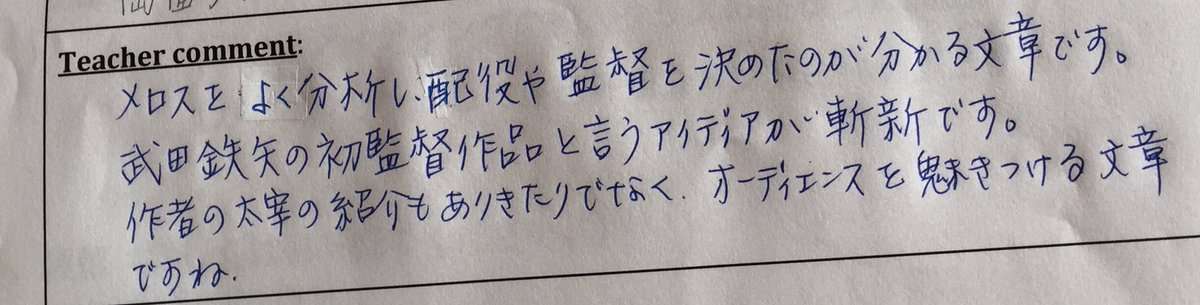 Teacher comment:
メロスをよく分析し、配役や監督を決めたのが分かる文章です。
武田鉄矢の初監督作品と言うアイディアが斬新です。
作者の太宰の紹介もありきたりでなく、オーディエンスを魅きつける文章
ですね。